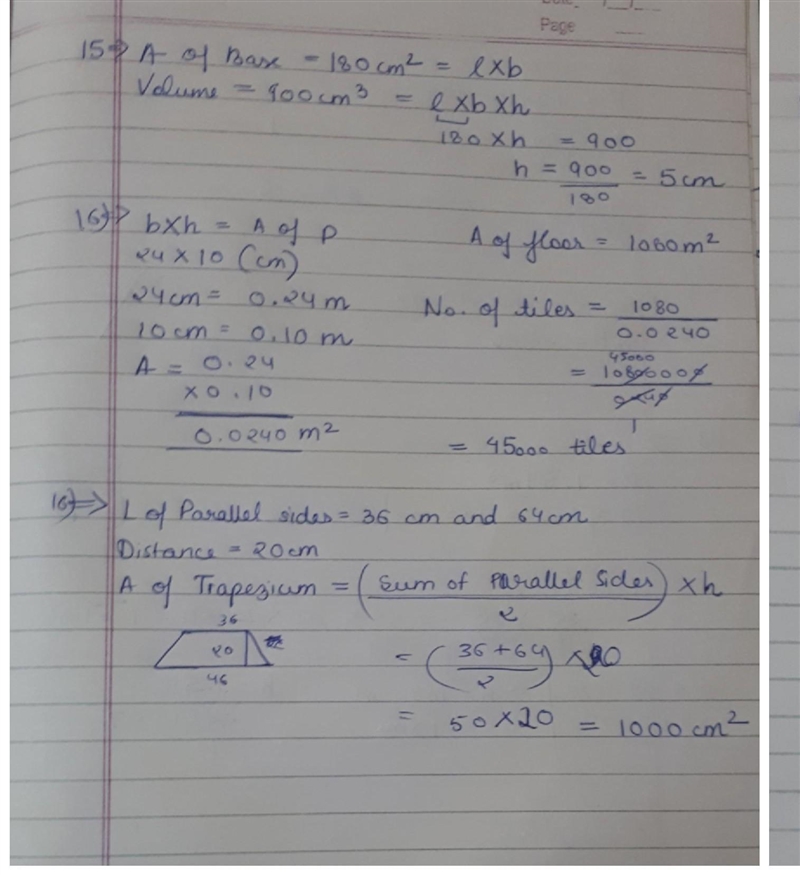 Page
15⇒ A of Base = 180cm² = l×b
Volume = 900cm³ = l×b×h
180×h = 900
h = 900/180 = 5cm
16⇒ b×h = A of P
24×10 (cm)
24cm = 0.24m
10cm = 0.10 m
A = 0.24
×0.10
0.0240 m²
A of floor = 1080m²
No. of tiles = 1080/0.0240
45000
= 10800000/0240
1
= 45000 tiles
16⇒ L of Parallel sides = 36 cm and 64cm
Distance = 20cm
A of Trapezium = (Sum of Parallel Sides/2) ×h
36
20
46
= (36+64/2) ×20
= 50×20 = 1000cm²